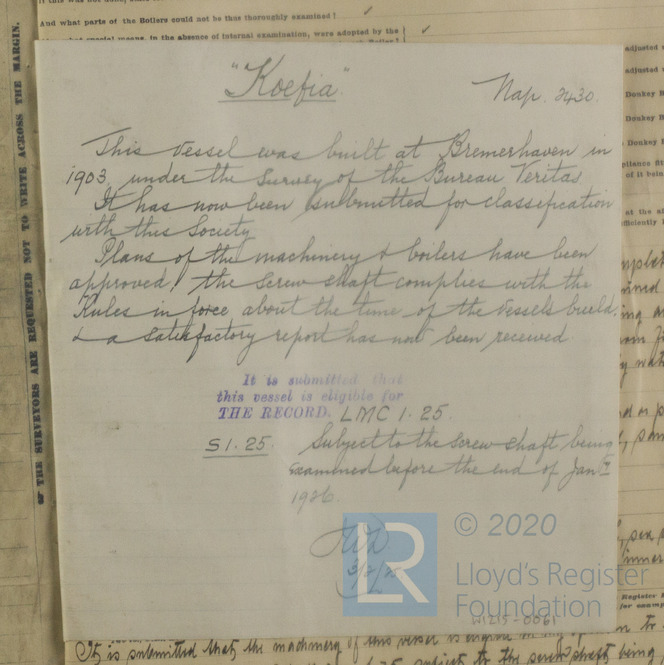 And what parts of the Boilers could not be thus thoroughly examined?
THE SURVEYORS ARE REQUESTED NOT TO WRITE ACROSS THE MARGIN.
"Koefia"
Nap. 2430.
This vessel was built at Bremerhaven in
1903 under the Survey of the Bureau Veritas
It has now been submitted for classification
with this Society
Plans of the machinery & boilers have been
approved, the screw shaft complies with the
Rules in force about the time of the vessels build,
& a satisfactory report has now been received.
It is submitted that
this vessel is eligible for
THE RECORD. LMC 1.25.
S1.25. Subject to the screw shaft being
examined before the end of Jany
1926.
© 2020
LR
Lloyd's Register
Foundation
W1215-0061
It is submitted that the machinery of this vessel is
subject to the screw shaft being